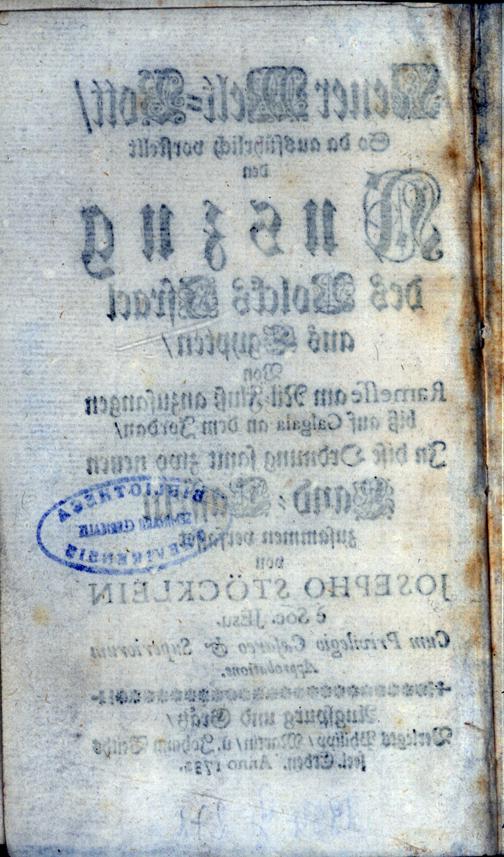 Neuer Welt-Bott/
So da ausführlich vorstellt
den
Auszug
des Volcks Israel
aus Egypten/
Von
Ramesse am Nil-Fluß anzufangen
biß auf Galgala an dem Jordan/
In diese Ordnung samt zwo neuen
Land-
zusammen verfasset
von
JOSEPHO STÖCKLEIN
è Soc. JEsu.
Cum Privilegio Caesareo & Superiorum
Approbatione.
Augspurg und Grätz/
Verlegts Philipp/ Martin/ u. Johann Veiths
seel. Erben. Anno 1732.
BIBLIOTHECA